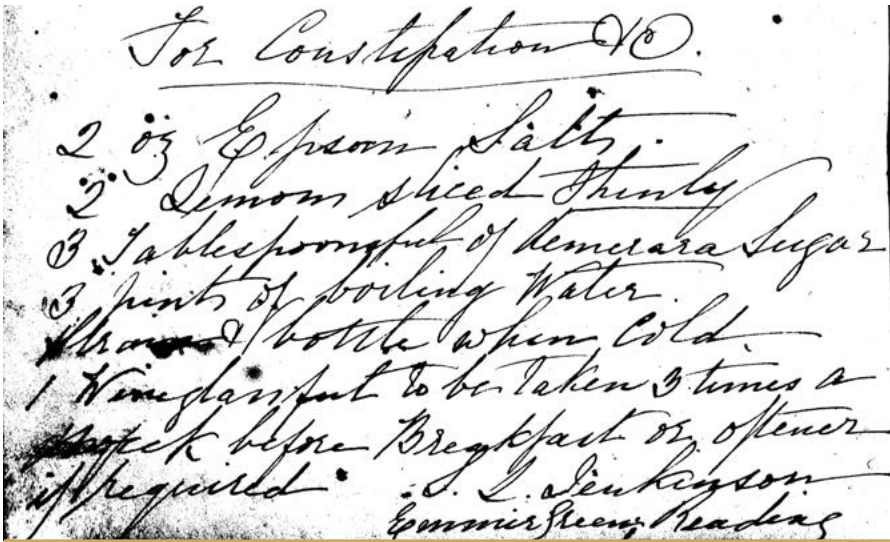 For Constipation &c.
2 oz Epsom Salts.
2 Lemons sliced thinly
3 Tablespoonsful of demerara Sugar
3 pints of boiling Water.
Strain & bottle when Cold.
1 Wineglassful to be taken 3 times a
week before Breakfast or oftener
if required
S. L. Jenkinson
Emmer Green, Reading